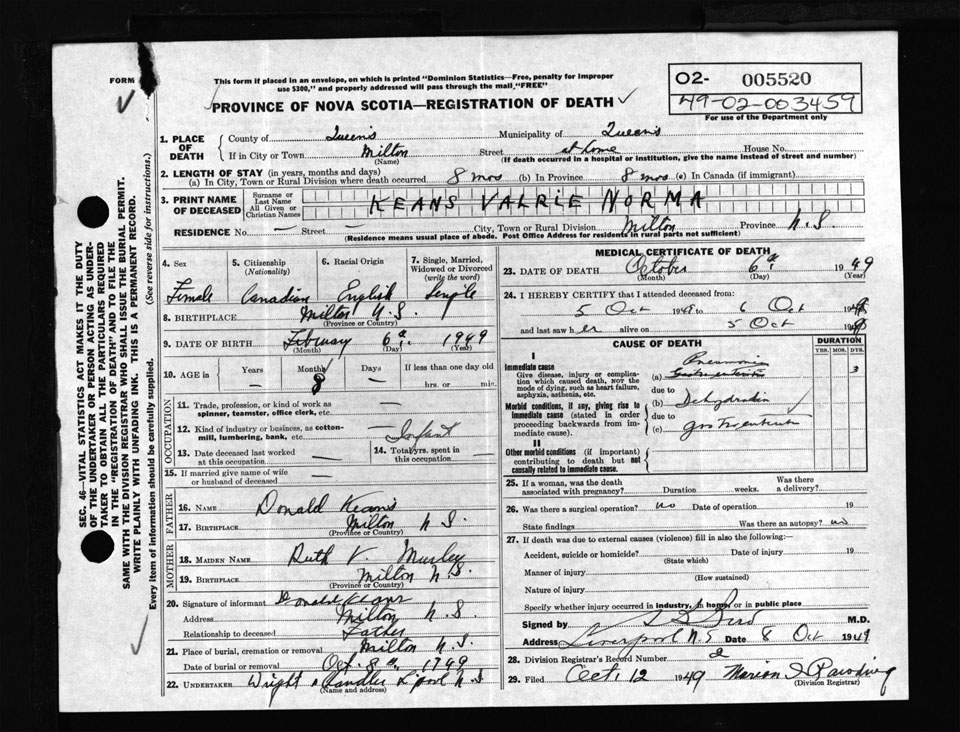 FORM
This form if placed in an envelope, on which is printed "Dominion Statistics—Free, penalty for Improper
use $300," and properly addressed will pass through the mail, "FREE"
O2- 005520
49-02-003459
For use of the Department only
PROVINCE OF NOVA SCOTIA—REGISTRATION OF DEATH
1. PLACE OF DEATH
County of Queens Municipality of Queens
If in City or Town Milton Street at home House No.
(Name) (If death occurred in a hospital or institution, give the name instead of street and number)
2. LENGTH OF STAY (in years, months and days)
(a) In City, Town or Rural Division where death occurred 8 mos (b) In Province 8 mos (c) In Canada (if immigrant)
3. PRINT NAME OF DECEASED
Surname or Last Name
All Given or Christian Names
KEANS VALRIE NORMA
RESIDENCE No. — Street — City, Town or Rural Division Milton Province N.S.
(Residence means usual place of abode. Post Office Address for residents in rural parts not sufficient)
4. Sex
Female
5. Citizenship
(Nationality)
Canadian
6. Racial Origin
English
7. Single, Married,
Widowed or Divorced
(write the word)
Single
8. BIRTHPLACE Milton N.S.
(Province or Country)
9. DATE OF BIRTH February 6th 1949
(Month) (Day) (Year)
10. AGE in
Years —
Months 8
Days —
If less than one day old
hrs. or min.
OCCUPATION
11. Trade, profession, or kind of work as
spinner, teamster, office clerk, etc. —
12. Kind of industry or business, as cotton-
mill, lumbering, bank, etc. Infant
13. Date deceased last worked
at this occupation —
14. Total yrs. spent in
this occupation —
15. If married give name of wife
or husband of deceased —
FATHER
16. NAME Donald Keans
17. BIRTHPLACE Milton N.S.
(Province or Country)
MOTHER
18. MAIDEN NAME Ruth V.
19. BIRTHPLACE Milton N.S.
(Province or Country)
20. Signature of informant Donald Keans
Address Milton N.S.
Relationship to deceased Father
21. Place of burial, cremation or removal Milton N.S.
Date of burial or removal Oct. 8th 1949
22. UNDERTAKER Wright & Chandler L'pool N.S.
(Name and address)
MEDICAL CERTIFICATE OF DEATH
23. DATE OF DEATH October 6th 1949
(Month) (Day) (Year)
24. I HEREBY CERTIFY that I attended deceased from:
5 Oct 1949 to 6 Oct 1949
and last saw her alive on 5 Oct 1949
CAUSE OF DEATH
DURATION
YRS. MOS. DYS.
I
Immediate cause
Give disease, injury or complica-
tion which caused death, NOT the
mode of dying, such as heart failure,
asphyxia, asthenia, etc.
Pneumonia
(a) 3
due to
Morbid conditions, if any, giving rise to
immediate cause (stated in order
proceeding backwards from im-
mediate cause).
(b) Dehydration
due to
(c)
II
Other morbid conditions (if important)
contributing to death but not
causally related to immediate cause.
25. If a woman, was the death
associated with pregnancy? Duration weeks. Was there
a delivery?
26. Was there a surgical operation? no Date of operation 19
State findings Was there an autopsy? no
27. If death was due to external causes (violence) fill in also the following:—
Accident, suicide or homicide? Date of injury 19
(State which)
Manner of injury
(How sustained)
Nature of injury
Specify whether injury occurred in industry, in home or in public place
Signed by M.D.
Address Liverpool N.S Date 8 Oct 1949
28. Division Registrar's Record Number 2
29. Filed Oct. 12 1949 Marion
(Division Registrar)
SEC. 46—VITAL STATISTICS ACT MAKES IT THE DUTY
OF THE UNDERTAKER OR PERSON ACTING AS UNDER-
TAKER TO OBTAIN ALL THE PARTICULARS REQUIRED
IN THE "REGISTRATION OF DEATH" AND TO FILE THE
SAME WITH THE DIVISION REGISTRAR WHO SHALL ISSUE THE BURIAL PERMIT.
WRITE PLAINLY WITH UNFADING INK. THIS IS A PERMANENT RECORD.
Every item of information should be carefully supplied. (See reverse side for instructions.)